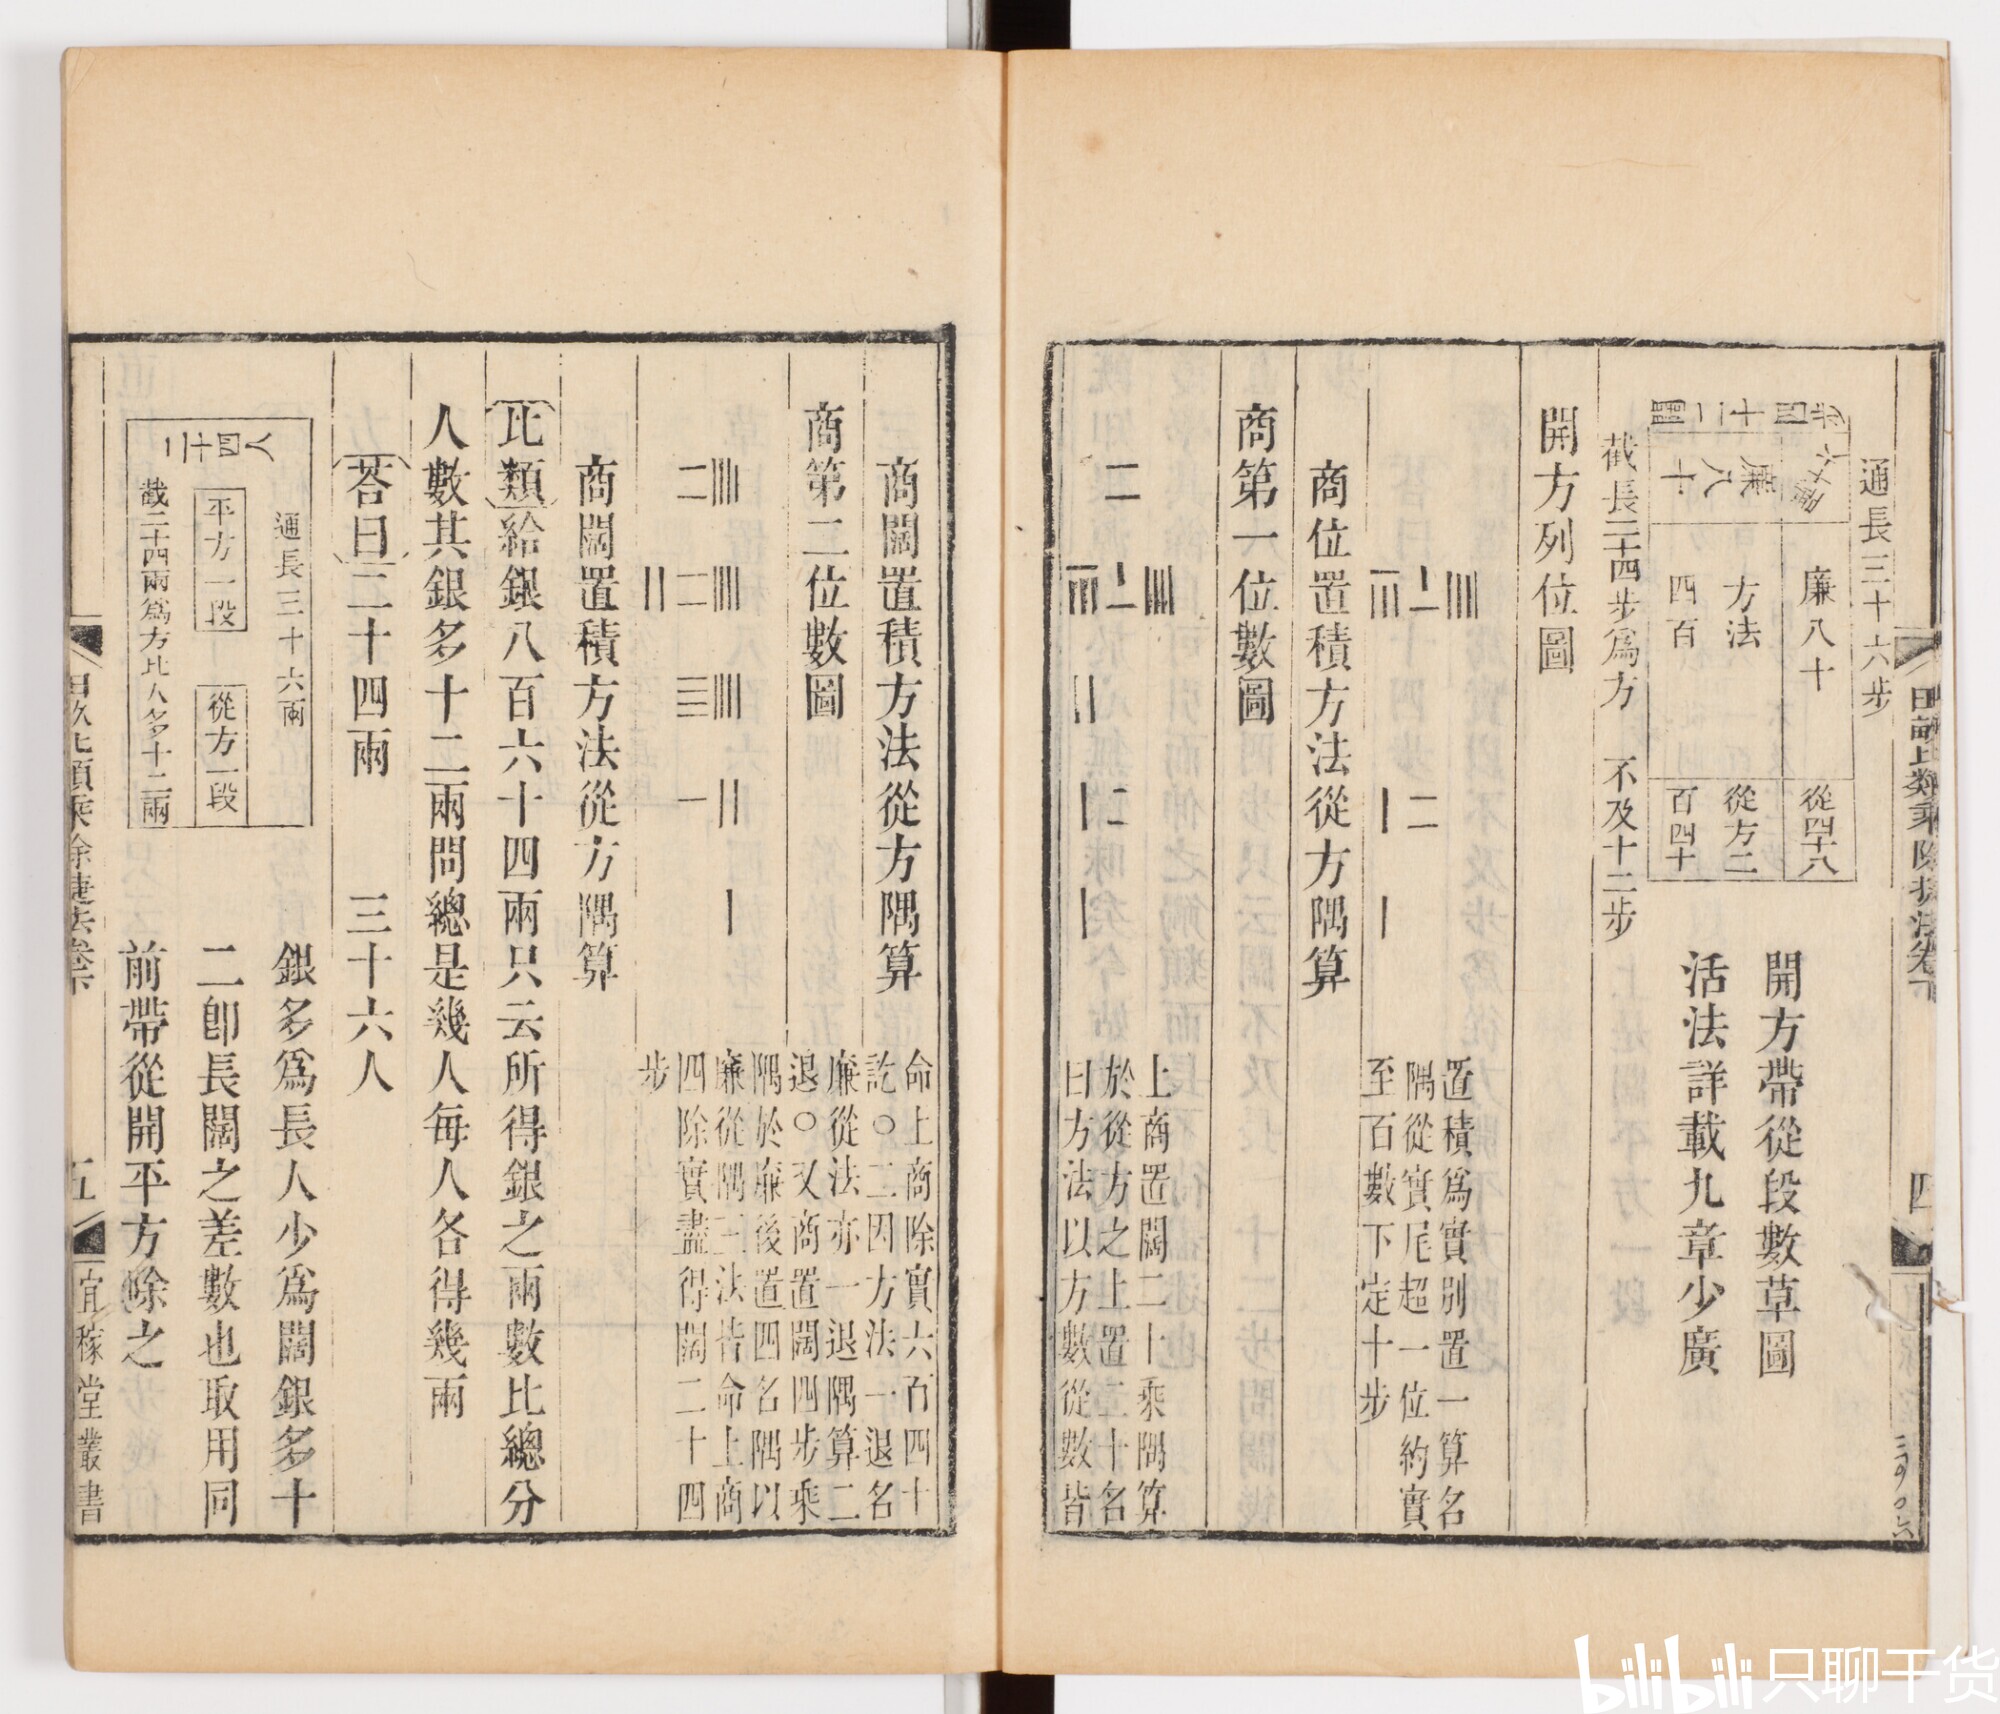 田畝比類乘除捷法卷下
四
通長三十六步
闊二十四步
隅十六
廉八十
廉八十
方法
四百
從四十八
從方二
百四十
截長二十四步爲方 不及十二步
開方帶從段數草圖
活法詳載九章少廣
開方列位圖
置積爲實別置一算名
隅從實尾超一位約實
至百數下定十步
商位置積方法從方隅算
商第一位數圖
上商置闊二十乘隅算
於從方之上置二十名
曰方法以方數從數皆
命上商除實六百四十
訖○二因方法一退名
廉從法亦一退隅算二
退○又商置闊四步乘
隅於廉後置四名隅以
廉從隅三法皆命上商
四除實盡得闊二十四
步
商闊置積方法從方隅算
商第二位數圖
商闊置積方法從方隅算
比類給銀八百六十四兩只云所得銀之兩數比總分
人數其銀多十二兩問總是幾人每人各得幾兩
荅曰二十四兩 三十六人
通長三十六兩
二十四人
平方一段
從方一段
截二十四兩爲方比人多十二兩
銀多爲長人少爲闊銀多十
二卽長闊之差數也取用同
前帶從開平方除之
田畝比類乘除捷法卷下
五
宜稼堂叢書
bilibili 只聊干货